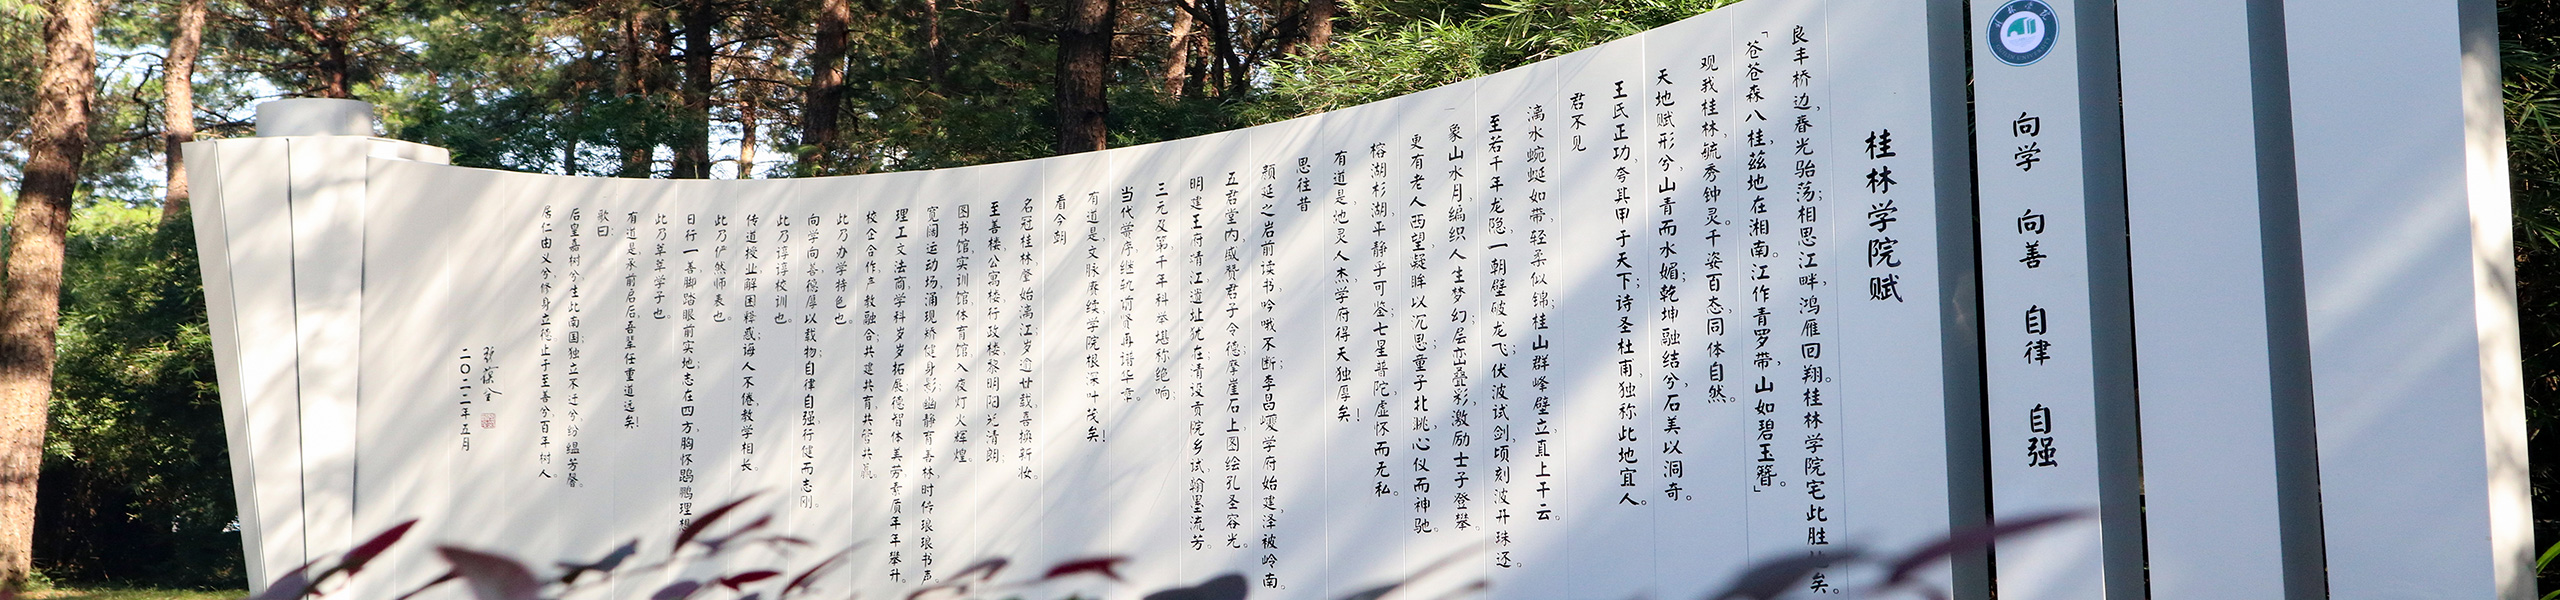 向学 向善 自律 自强
桂林学院赋
良丰桥边,春光骀荡;相思江畔,鸿雁回翔。桂林学院宅此胜地矣。
「苍苍森八桂,兹地在湘南。江作青罗带,山如碧玉簪。」
观我桂林,毓秀钟灵。千姿百态,同体自然。
天地赋形兮,山青而水媚;乾坤融结兮,石美以洞奇。
王氏正功,夸其甲于天下;诗圣杜甫,独称此地宜人。
君不见
漓水蜿蜒如带,轻柔似锦;桂山群峰壁立,直上干云。
至若千年龙隐,一朝壁破龙飞;伏波试剑,顷刻波开珠还。
象山水月,编织人生梦幻;层峦叠彩,激励士子登攀。
更有老人西望,凝眸以沉思;童子北眺,心仪而神驰。
榕湖杉湖,平静乎可鉴;七星普陀,虚怀而无私。
有道是,地灵人杰,学府得天独厚矣!
思往昔
颜延之岩前读书,吟哦不断;李昌巙学府始建,泽被岭南。
五君堂内,咸赞君子令德;摩崖石上,图绘孔圣容光。
明建王府,靖江遗址犹在;清设贡院,乡试翰墨流芳。
三元及第,千年科举堪称绝响;
当代黉序,继轨前贤再谱华章。
有道是,文脉赓续,学院根深叶茂矣!
看今朝
名冠桂林,肇始漓江;岁逾廿载,喜换新妆。
至善楼,公寓楼,行政楼,黎明阳光清朗;
图书馆,实训馆,体育馆,入夜灯火辉煌。
宽阔运动场,涌现矫健身影;幽静育善林,时传琅琅书声。
理工文法商,学科岁岁拓展;德智体美劳,素质年年攀升。
校企合作,产教融合;共建共育,共管共赢。
此乃办学特色也。
向学向善,德厚以载物;自律自强,行健而志刚。
此乃谆谆校训也。
传道授业,解困释惑;诲人不倦,教学相长。
此乃俨然师表也。
日行一善,脚踏眼前实地;志在四方,胸怀鹍鹏理想。
此乃莘莘学子也。
有道是,承前启后,吾辈任重道远矣!
歌曰:
后皇嘉树兮,生此南国;独立不迁兮,纷缊芳馨。
居仁由义兮,修身立德;止于至善兮,百年树人。
张葆全
二〇二二年五月